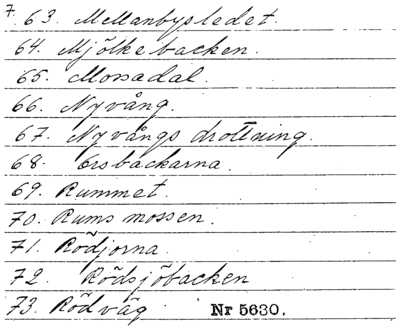 7. 63. Mellanbysledet.
64. Mjölkebacken.
65. Mossadal.
66. Nyvång.
67. Nyvångs drottning.
68. Orsbackarna.
69. Rummet.
70. Rums mossen.
71. Rödjorna.
72. Rödsjöbacken
73. Rödväg Nr 5630.